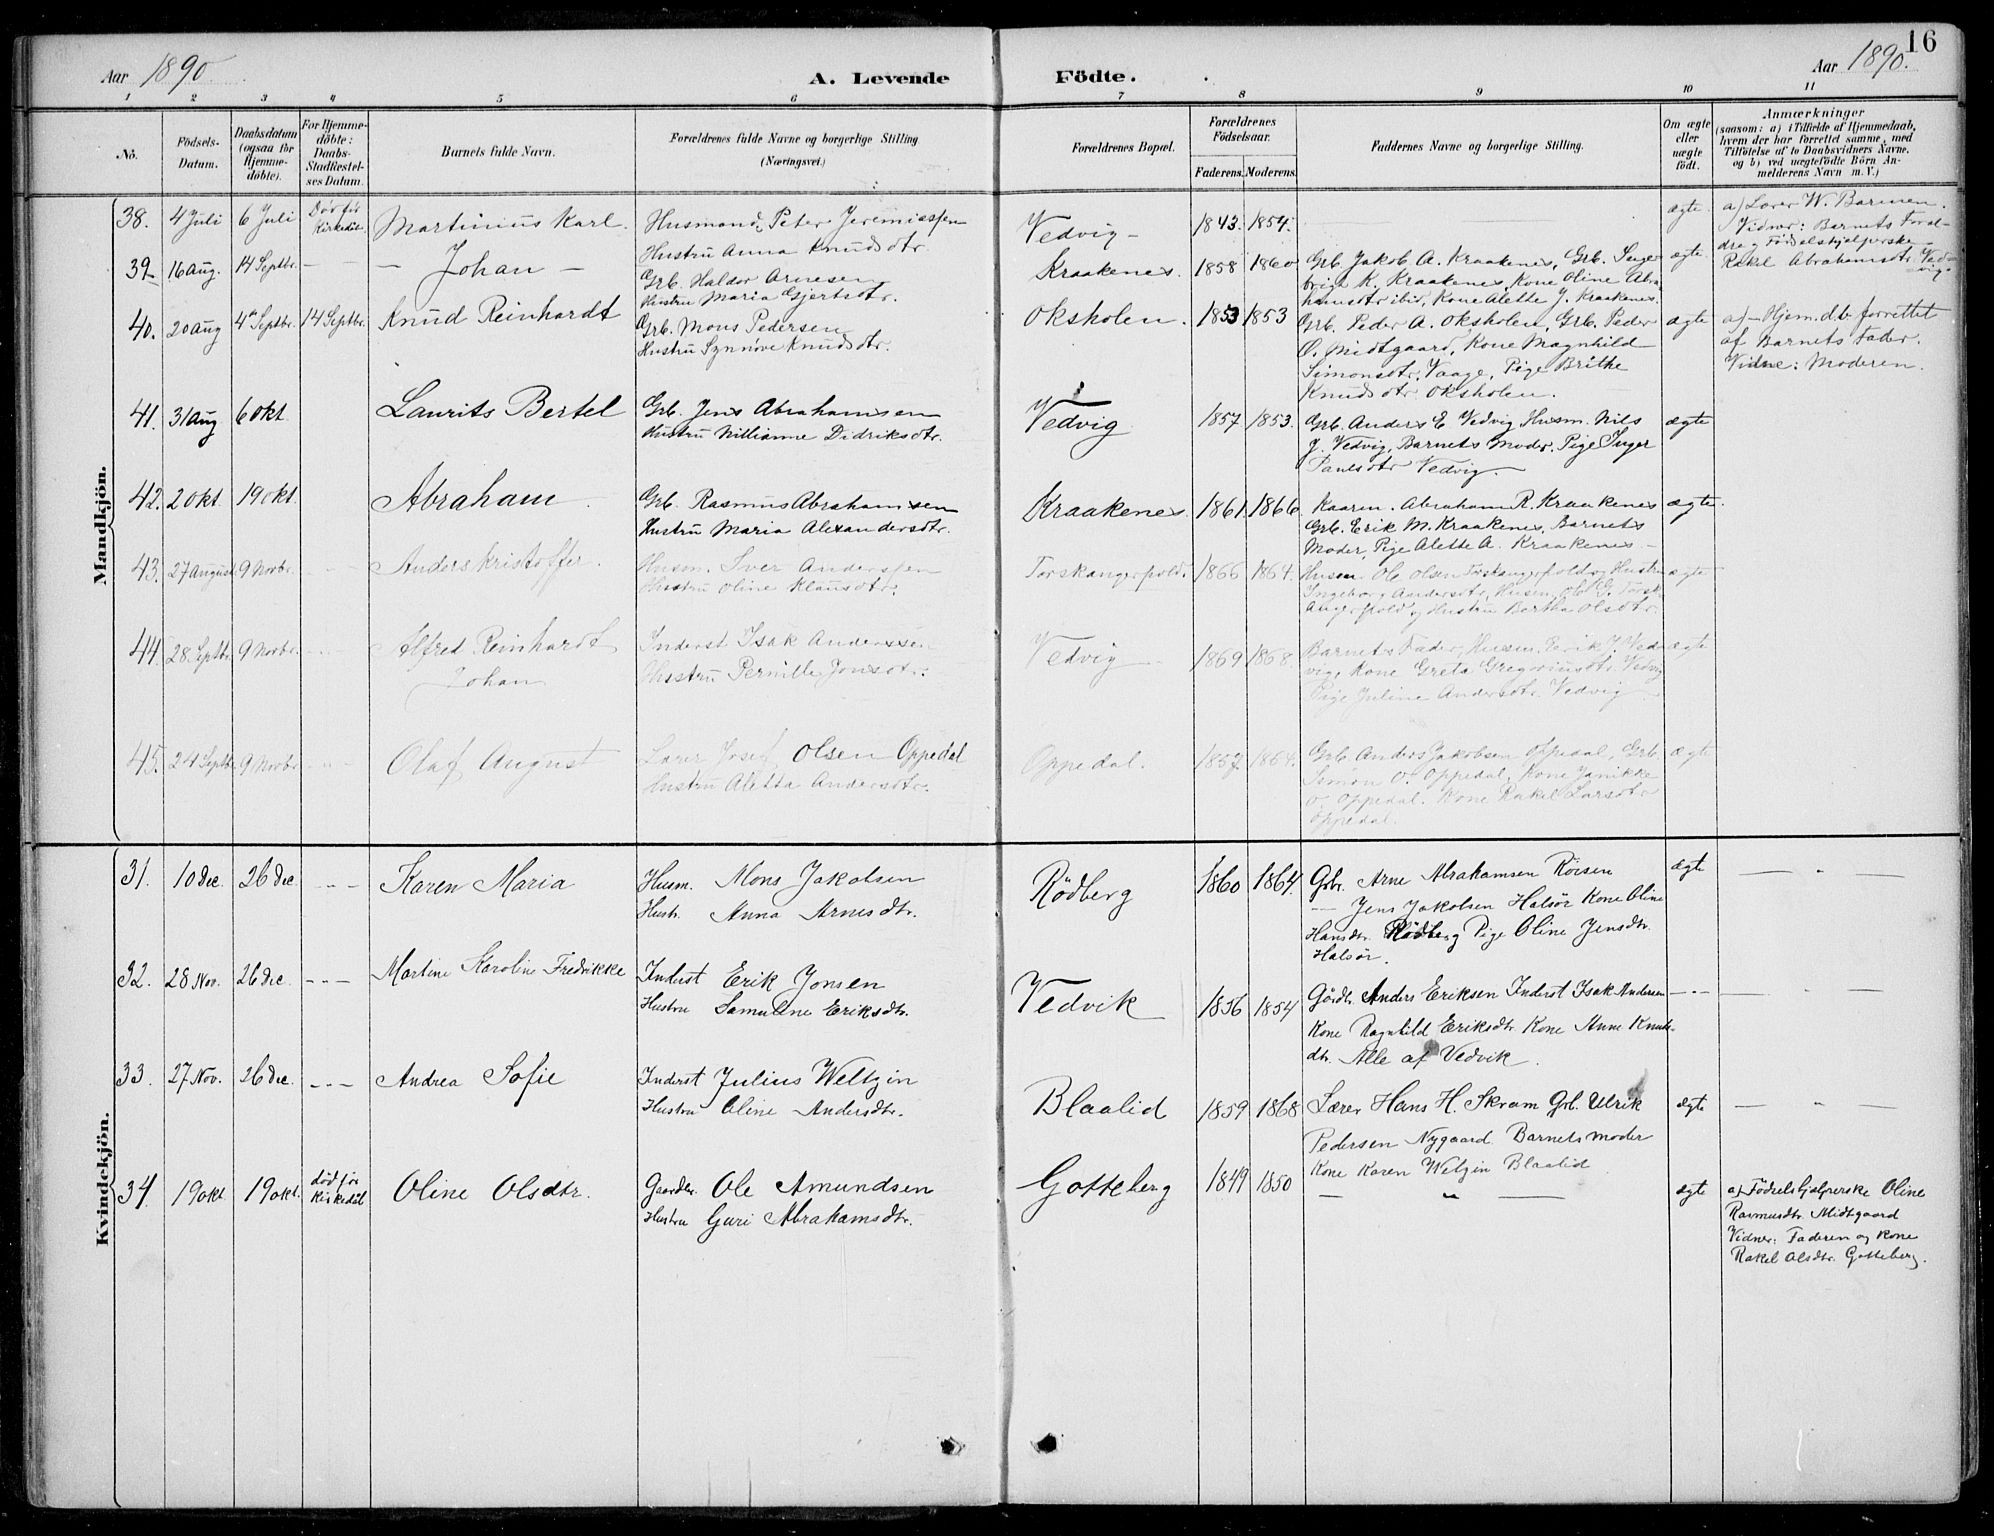 16
Aar 1890
A. Levende Födte.
Aar 1890.
1 2 3 4 5 6 7 8 9 10 11
No.
Födsels-
Datum.
Daabsdatum
(ogsaa for
Hjemme-
döbte).
For Hjemme-
döbte:
Daabs-
Stadfæstel-
ses Datum.
Barnets fulde Navn.
Forældrenes fulde Navne og borgerlige Stilling
(Næringsvei.)
Forældrenes Bopæl.
Forældrenes
Födselsaar.
Faderens. Moderens.
Faddernes Navne og borgerlige Stilling.
Om ægte
eller
uægte
födt.
Anmærkninger
(saasom: a) i Tilfælde af Hjemmedaab,
hvem der har forrettet samme, med
Tilföielse af to Daabsvidners Navne.
og b) ved uægtefödte Börn An-
melderens Navn m. V.)
Mandkjön.
38. 4 Juli 6 Juli Död før Kirkedåb Martinius Karl.
Husmand Peter Jeremiassen
Hustru Anna Knudsdtr.
Vedvig - 1843. 1854. ægte
a) Lærer W. Barmen.
Vidner: Barnets Foræl-
dre og Fødselshjelperske
Rakel Abrahamsdtr. Ved-
vig.
39. 16 Aug. 14 Septbr. — — Johan —
Grb. Haldor Arnesen
Hustru Maria Gjertsdtr.
Kraakenes. 1858 1860
Grb. Jakob A. Kraakenes, Grb. Inge-
brigt K. Kraakenes, Kone Oline Abra-
hamsdtr ibid, Kone Alette J. Kraakenes.
ægte
40. 20 Aug 4de Septbr. 14 Septbr. Knud Reinhardt
Grb. Mons Pedersen
Hustru Synnöve Knudsdtr.
Oksholen. 1853 1853
Grb. Peder A. Oksholen, Grb. Peder
O. Midtgaard, Kone Magnhild
Simonsdtr. Vaage, Pige Brithe
Knudsdtr Oksholen.
ægte
a) - Hjem.db forrettet
af Barnets Fader.
Vidne: Moderen.
41. 31 Aug 6 Okt. Laurits Bertel
Grb. Jens Abrahamsen
Hustru Nillianne Didriksdtr.
Vedvig 1857 1853.
Grb. Anders E Vedvig Husm. Nils
J. Vedvig, Barnets Moder. Pige Inger
Paulsdtr Vedvig.
ægte
42. 2 Okt. 19 Okt. Abraham
Grb. Rasmus Abrahamsen
Hustru Maria Alexandersdtr.
Kraakenes. 1861. 1866.
Kaaren. Abraham R. Kraakenes
Grb. Erik M. Kraakenes, Barnets
Moder, Pige Alette A. Kraakenes -
ægte.
43. 27 August 9 Novbr. Anders Kristoffer.
Husm. Iver Anderssen
Hustru Oline Klausdtr.
Torskangerpold. 1866 1864.
Husm. Ole Olsen Torskangerpold og Hustru
Ingeborg Andersdtr, Husm. Ole G. Torsk
Angerpold og Hustru Bertha Olsdtr.
ægte
44. 28 Septbr. 9 Novbr. Alfred Reinhardt
Johan
Inderst Isak Anderssen
Hustru Pernille Jonsdtr.
Vedvig 1869 1868.
Barnets Fader, Husm. Erik J. Ved-
vig, Kone Greta Gregoriusdtr. Vedvig
Pige Juline Andersdtr. Vedvig
ægte
45. 24 Septbr 9 Novbr Olaf August
Lærer Josef Olsen Oppedal
Hustru Aletta Andersdtr.
Oppedal. 1857. 1864.
Grb. Anders Jakobsen Oppedal, Grb.
Simon O. Oppedal, Kone Janikke
O. Oppedal. Kone Rakel Larsdtr
Oppedal.
ægte
Kvindekjön.
31. 10 Dec. 26 Dec. - - - Karen Maria
Husm. Mons Jakobsen
Hustr. Anna Arnesdtr.
Rødberg 1860 1864.
Gbr. Arne Abrahamsen Röisen
— Jens Jakobsen Halsör Kone Oline
Hansdtr. Rödberg Pige Oline Jensdtr.
Halsör.
ægte — " —
32. 28 Nov. 26 Dec. - - - Martine Karoline Fredrikke
Inderst Erik Jonsen
Hustru Samuline Eriksdtr.
Vedvik 1856 1854
Gårdbr Anders Eriksen Inderst Isak Andersen
Kone Ragnhild Eriksdtr. Kone Anne Knuts-
dtr. Alle af Vedvik.
— " — — " —
33. 27 Nov. 26 Dec. - - - Andrea Sofie
Inderst Julius Weltzin
Hustru Oline Andersdtr.
Blaalid 1859 1868
Lærer Hans H. Skram Grb. Ulrik
Pedersen Nygaard. Barnets moder
Kone Karen Weltzin Blaalid
ægte — " —
34. 19 Okt 19 Okt. død før Kirkedåb Oline Olsdtr.
Gaardbr. Ole Amundsen
Hustru Guri Abrahamsdtr.
Gotteberg 1849 1850 — " — ægte
a) Födselshjelperske Oline
Rasmusdtr. Midtgaard
Vidner: Faderen og Kone
Rakel Olsdtr. Gotteberg.